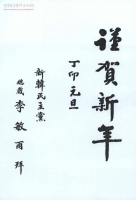 謹賀新年
丁卯元旦
新韓民主黨
總裁 李敏雨 拜